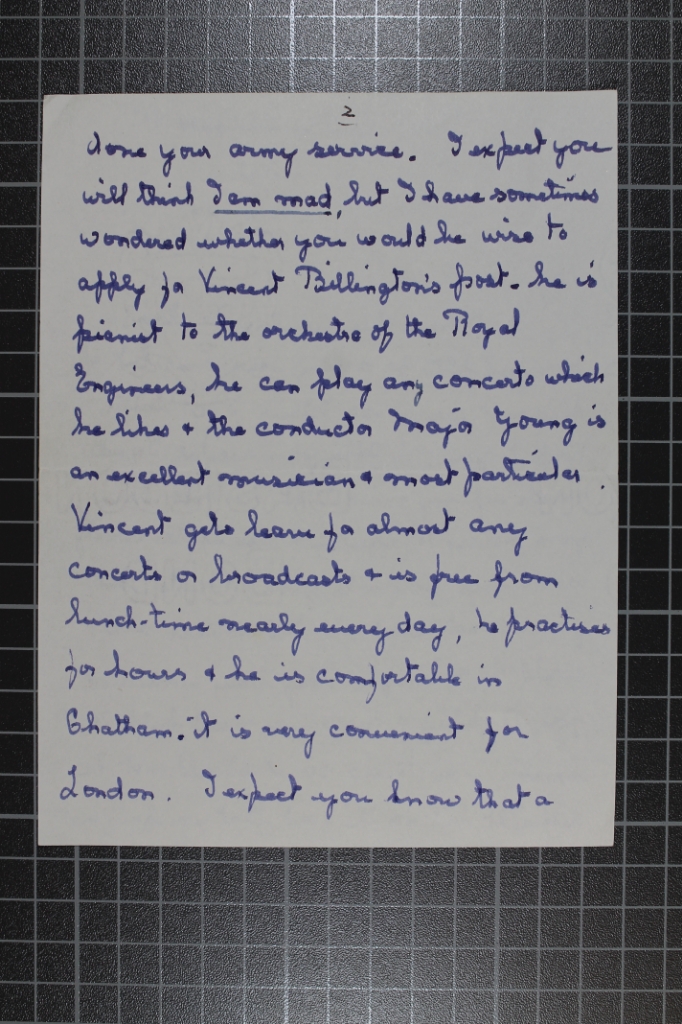 2
done your army service. I expect you
will think I am mad, but I have sometimes
wondered whether you would be wise to
apply for Vincent Billington's post. he is
pianist to the orchestra of the Royal
Engineers, he can play any concerto which
he likes & the conductor Major Young is
an excellent musician & most particular.
Vincent gets leave for almost any
concerts or broadcasts & is free from
lunch-time nearly every day, he practises
for hours & he is comfortable in
Chatham. it is very convenient for
London. I expect you know that a